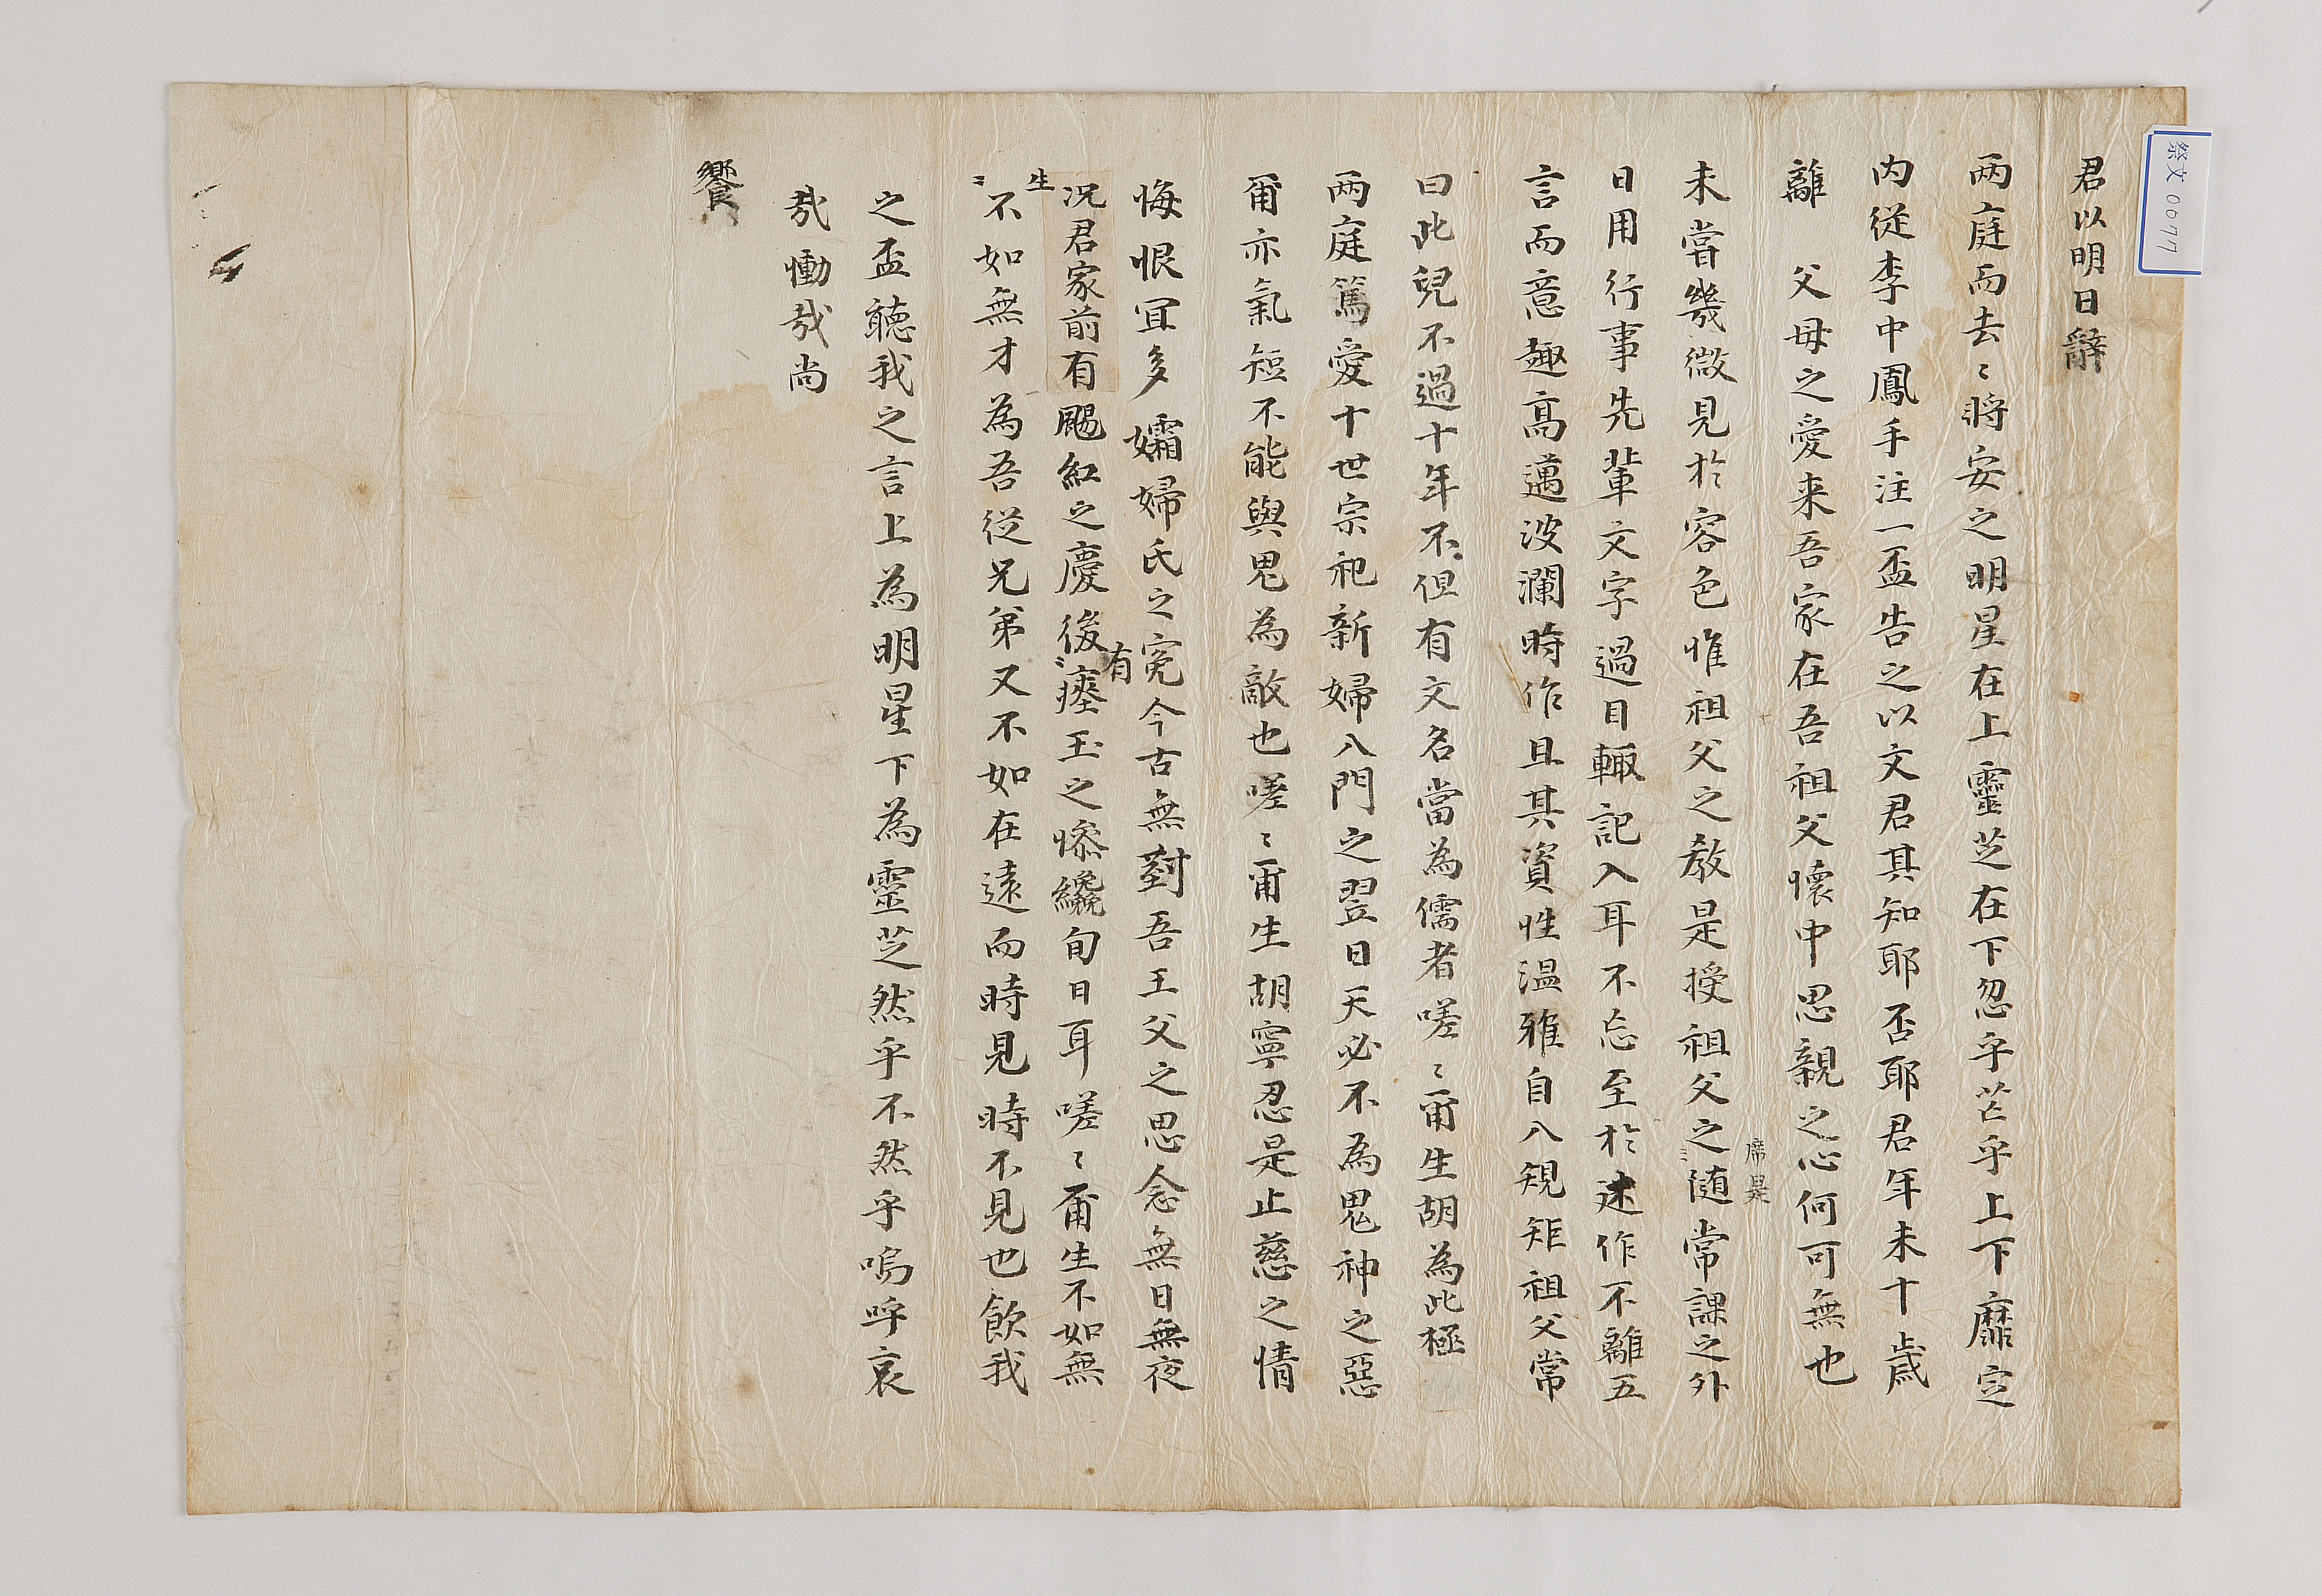 祭文0077
君以明日辭
兩庭而去〻將安之明星在上靈芝在下忽乎芒乎上下靡定
内從李中鳳手注一盃告之以文君其知耶否耶君年未十歲
離 父母之愛来吾家在吾祖父懷中思親之心何可無也
未嘗幾微見於容色惟祖父之教是授祖父之随常課之外
席是
日用行事先輩文字過目輒記入耳不忘至於述作不離五
言而意趣高邁波瀾時作且其資性温雅自八規矩祖父常
曰此兒不過十年不但有文名當為儒者嗟〻甭生胡為此極
兩庭篤愛十世宗祀新婦八門之翌日天必不為鬼神之惡
甭亦氣短不能與鬼為敵也嗟〻甭生胡寧忍是止慈之情
悔恨冝多孀婦氏之寃今古無對吾王父之思念無日無夜
有
况君家前有賜紅之慶後瘞玉之慘纔旬日耳嗟〻甭生不如無
生
不如無才為吾從兄弟又不如在遠而時見時不見也飲我
之盃聽我之言上為明星下為靈芝然乎不然乎嗚呼哀
哉慟哉尚
饗